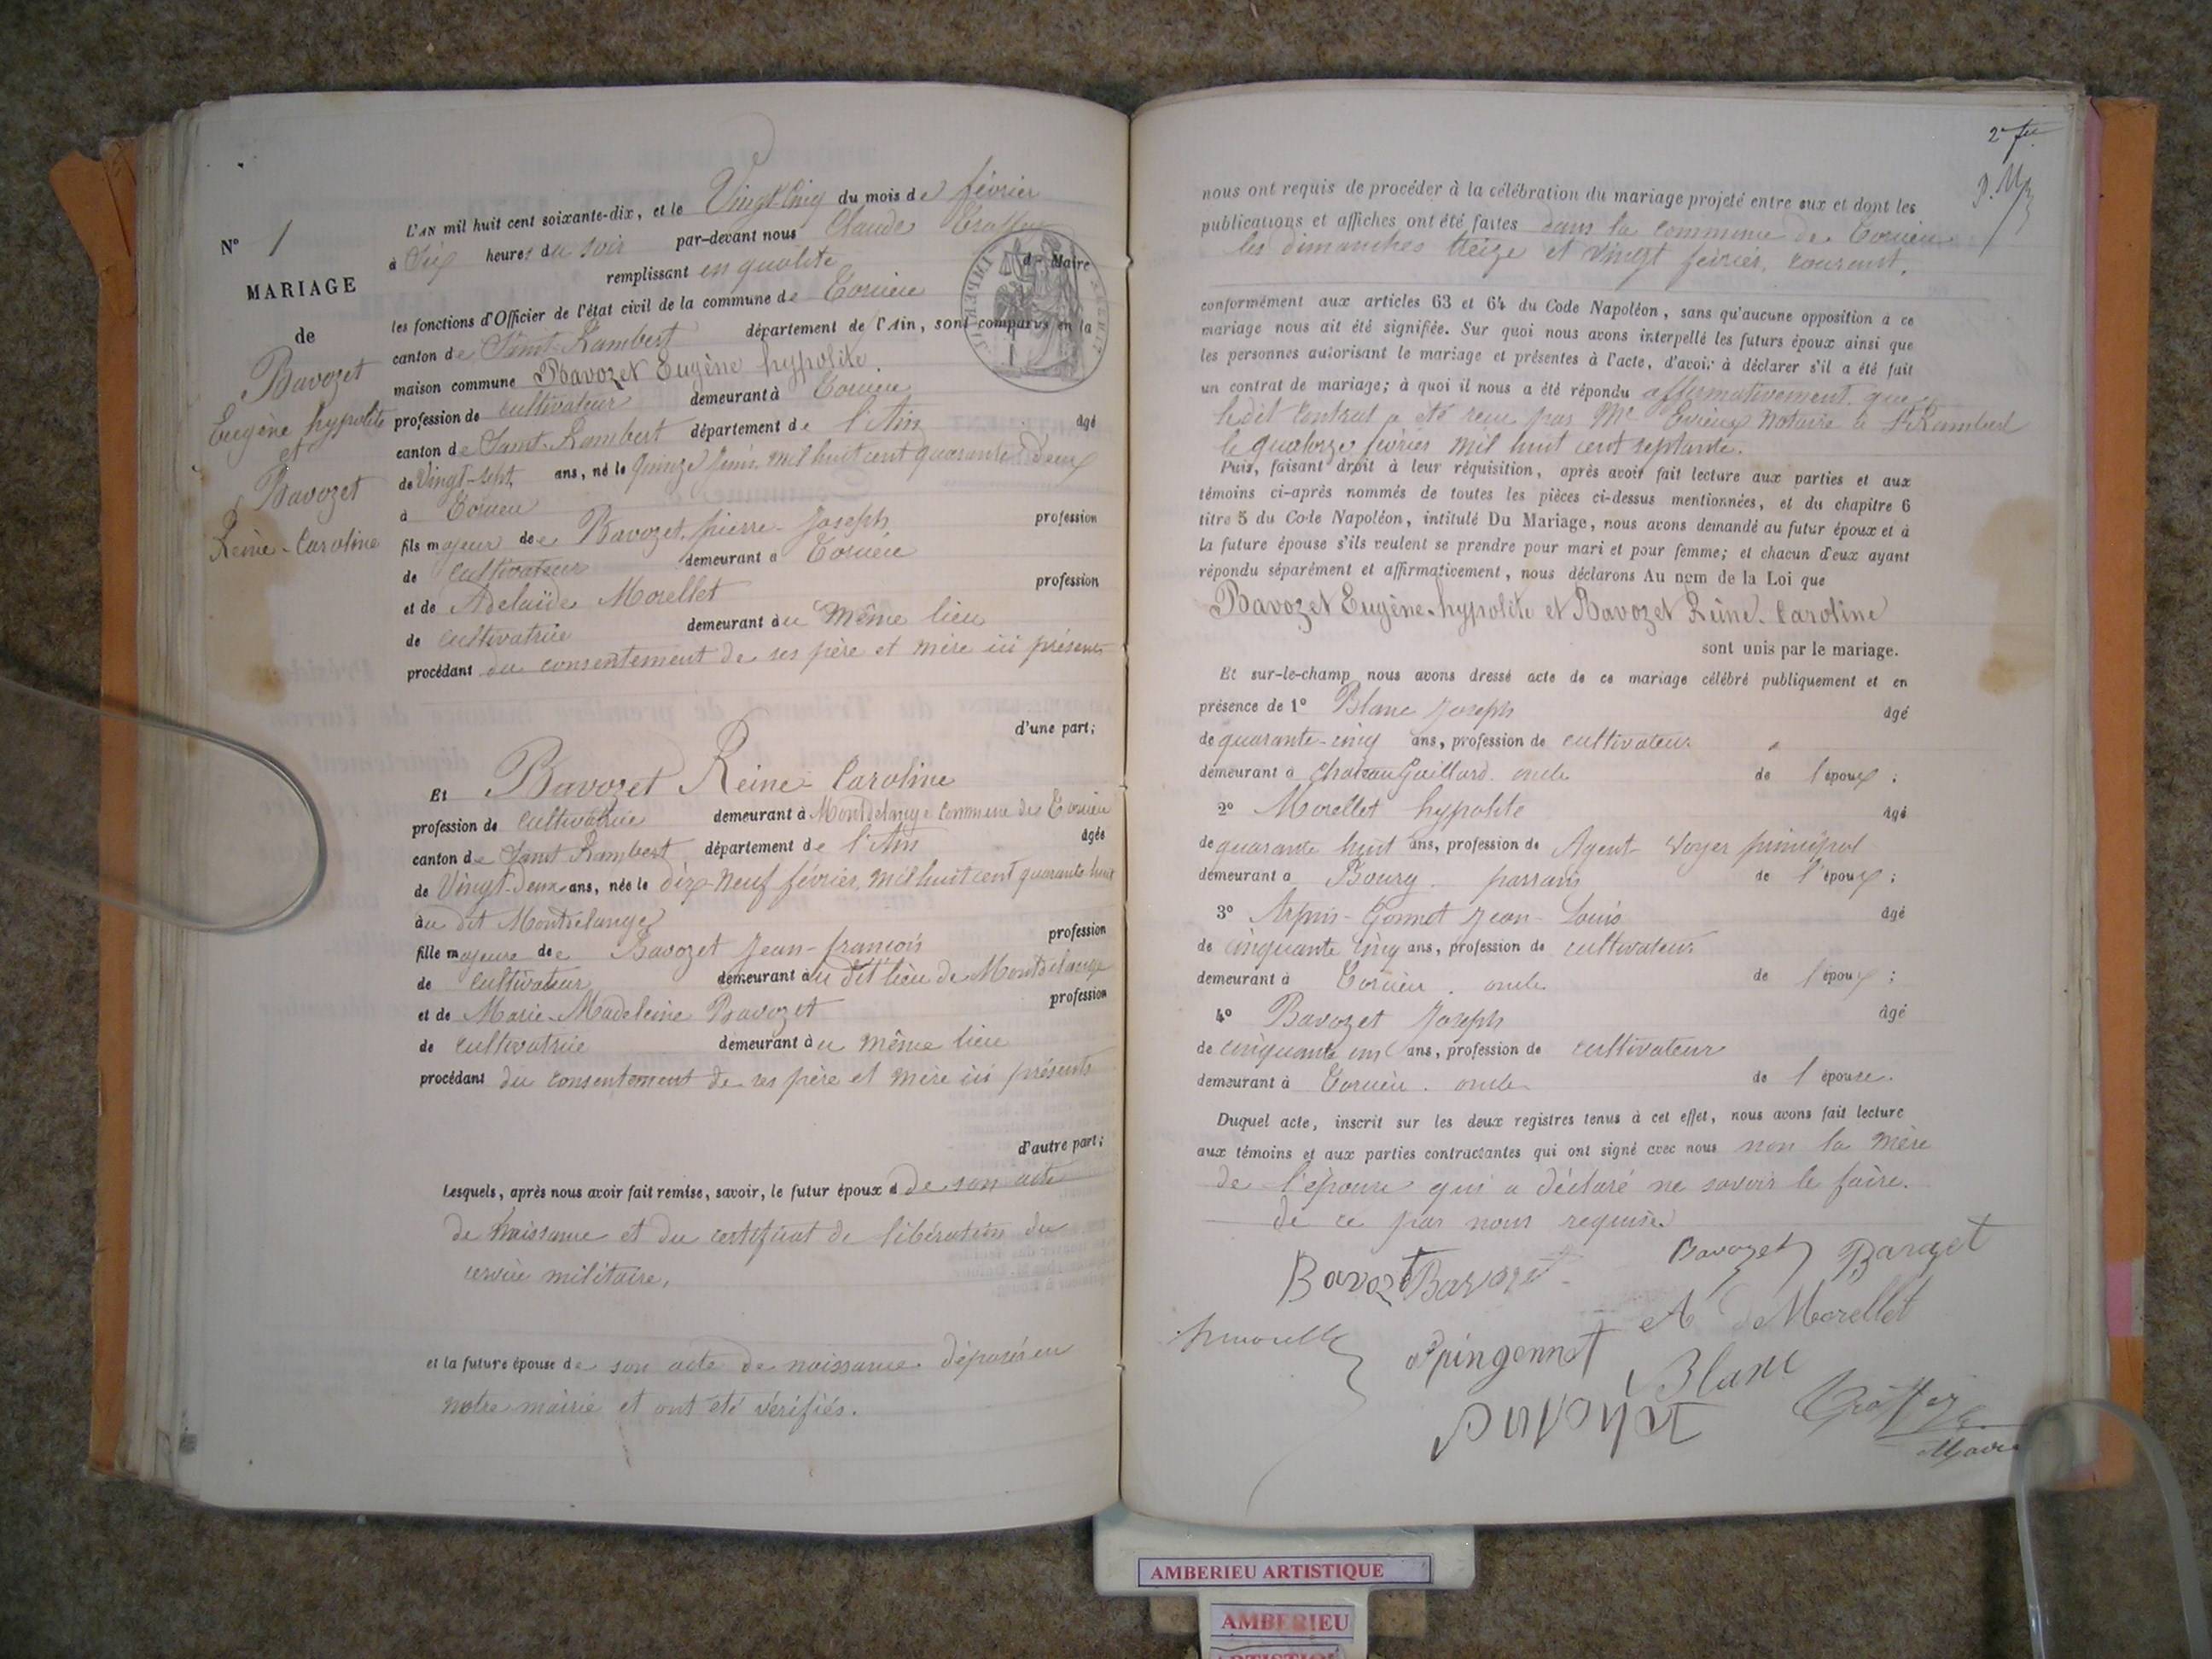 N° 1
MARIAGE
de
Bavozet
Eugène hypolite
et
Bavozet
Reine-Caroline
L'AN mil huit cent soixante-dix, et le Vingt-Cinq du mois de février
à Six heures du soir par-devant nous Claude
remplissant en qualité de Maire
les fonctions d'Officier de l'état civil de la commune de Torcieu
canton de Saint-Rambert département de l'Ain, sont comparus en la
maison commune Bavozet Eugène hypolite
profession de cultivateur demeurant à Torcieu
canton de Saint-Rambert département de l'Ain âgé
de Vingt-sept ans, né le quinze Juin mil huit cent quarante deux
à Torcieu
fils majeur de Bavozet pierre-Joseph profession
de cultivateur demeurant à Torcieu
et de Adelaïde Morellet profession
de cultivatrice demeurant au même lieu
procédant du consentement de ses père et mère ici présents
d'une part;
Et Bavozet Reine-Caroline
profession de cultivatrice demeurant à Montdelange commune de Torcieu
canton de Saint Rambert département de l'Ain âgée
de Vingt-deux ans, née le dix-neuf février mil huit cent quarante huit
au dit Montdelange
fille majeure de Bavozet Jean-françois profession
de cultivateur demeurant au dit lieu de Montdelange
et de Marie-Madeleine Bavozet profession
de cultivatrice demeurant au même lieu
procédant du consentement de ses père et mère ici présents
d'autre part;
Lesquels, après nous avoir fait remise, savoir, le futur époux de son acte
de naissance et du certificat de libération du
service militaire,
et la future épouse de son acte de naissance déposés en
notre mairie et ont été vérifiés.
2e fet
nous ont requis de procéder à la célébration du mariage projeté entre eux et dont les
publications et affiches ont été faites dans la commune de Torcieu
les dimanches treize et vingt février, courant.
conformément aux articles 63 et 64 du Code Napoléon, sans qu'aucune opposition a ce
mariage nous ait été signifiée. Sur quoi nous avons interpellé les futurs époux ainsi que
les personnes autorisant le mariage et présentes à l'acte, d'avoir à déclarer s'il a été fait
un contrat de mariage; à quoi il nous a été répondu affirmativement que
le dit contrat a été reçu par Me notaire à St Rambert
le quatorze février mil huit cent septante.
Puis, faisant droit à leur réquisition, après avoir fait lecture aux parties et aux
témoins ci-après nommés de toutes les pièces ci-dessus mentionnées, et du chapitre 6
titre 5 du Code Napoléon, intitulé Du Mariage, nous avons demandé au futur époux et à
la future épouse s'ils veulent se prendre pour mari et pour femme; et chacun d'eux ayant
répondu séparément et affirmativement, nous déclarons Au nom de la Loi que
Bavozet Eugène-hypolite et Bavozet Reine-Caroline
sont unis par le mariage.
Et sur-le-champ nous avons dressé acte de ce mariage célébré publiquement et en
présence de 1° Blanc Joseph âgé
de quarante-cinq ans, profession de cultivateur
demeurant à Chateau Gaillard. oncle de l'époux;
2° Morellet hypolite âgé
de quarante huit ans, profession de Agent-Voyer principal
demeurant à Bourg. parrain de l'époux;
3° Arpin-Gonnet Jean-Louis âgé
de cinquante cinq ans, profession de cultivateur
demeurant à Torcieu. oncle de l'époux;
4° Bavozet Joseph âgé
de cinquante un ans, profession de cultivateur
demeurant à Torcieu. oncle de l'épouse.
Duquel acte, inscrit sur les deux registres tenus à cet effet, nous avons fait lecture
aux témoins et aux parties contractantes qui ont signé avec nous non la mère
de l'épouse qui a déclaré ne savoir le faire.
de ce par nous requise
Bavozet Bavozet Bavozet Bavozet
A De Morellet
Blanc
Maire
AMBERIEU ARTISTIQUE
AMBERIEU
ARTISTIQUE